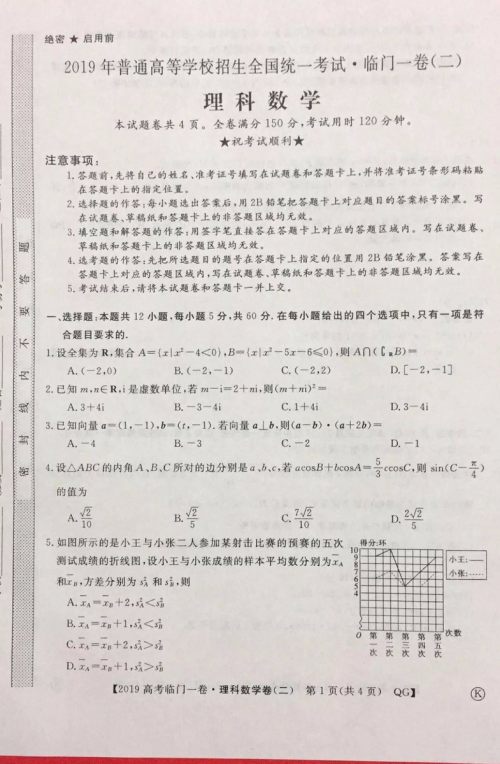 绝密 ★ 启用前
2019 年普通高等学校招生全国统一考试·临门一卷(二)
理科数学
本试题卷共 4 页。全卷满分 150 分,考试用时 120 分钟。
★祝考试顺利★
注意事项:
1. 答题前,先将自己的姓名、准考证号填写在试题卷和答题卡上,并将准考证号条形码粘贴
在答题卡上的指定位置。
2. 选择题的作答:每小题选出答案后,用 2B 铅笔把答题卡上对应题目的答案标号涂黑。写
在试题卷、草稿纸和答题卡上的非答题区域均无效。
3. 填空题和解答题的作答:用签字笔直接答在答题卡上对应的答题区域内。写在试题卷、
草稿纸和答题卡上的非答题区域均无效。
4. 选考题的作答:先把所选题目的题号在答题卡上指定的位置用 2B 铅笔涂黑。答案写在
答题卡上对应的答题区域内,写在试题卷、草稿纸和答题卡上的非答题区域均无效。
5. 考试结束后,请将本试题卷和答题卡一并上交。
一、选择题:本题共 12 小题,每小题 5 分,共 60 分. 在每小题给出的四个选项中,只有一项是符
合题目要求的.
1. 设全集为 R,集合 A={x|x²-4<0},B={x|x²-5x-6≤0},则 A∩(∁RB)=
A. (-2,0) B. (-2,-1) C. (-2,2) D. [-2,-1]
2. 已知 m,n∈R,i 是虚数单位,若 m-i=2+ni,则(m+ni)²=
A. 3+4i B. -3-4i C. 1+4i D. 3-4i
3. 已知向量 a=(1,-1),b=(t,-1). 若向量 a⊥b,则(a-b)·(a+2b)=
A. -4 B. -3 C. -2 D. -1
4. 设△ABC 的内角 A、B、C 所对的边分别是 a、b、c,若 acosB+bcosA=5/3 ccosC,则 sin(C-π/4)
的值为
A. √2/10 B. √2/5 C. 7√2/10 D. 2√2/5
5. 如图所示的是小王与小张二人参加某射击比赛的预赛的五次
测试成绩的折线图,设小王与小张成绩的样本平均数分别为x̄A
和x̄B,方差分别为 s²A 和 s²B,则
A. x̄A=x̄B+2,s²A<s²B
B. x̄A=x̄B+1,s²A<s²B
C. x̄A=x̄B+2,s²A>s²B
D. x̄A=x̄B+1,s²A>s²B
得分:环
10
9
8
7
6
5
4
O 第一次 第二次 第三次 第四次 第五次 次数
小王:
小张:
【2019 高考临门一卷·理科数学卷(二) 第 1 页(共 4 页) QG】
Ⓚ
密 封 线 内 不 要 答 题